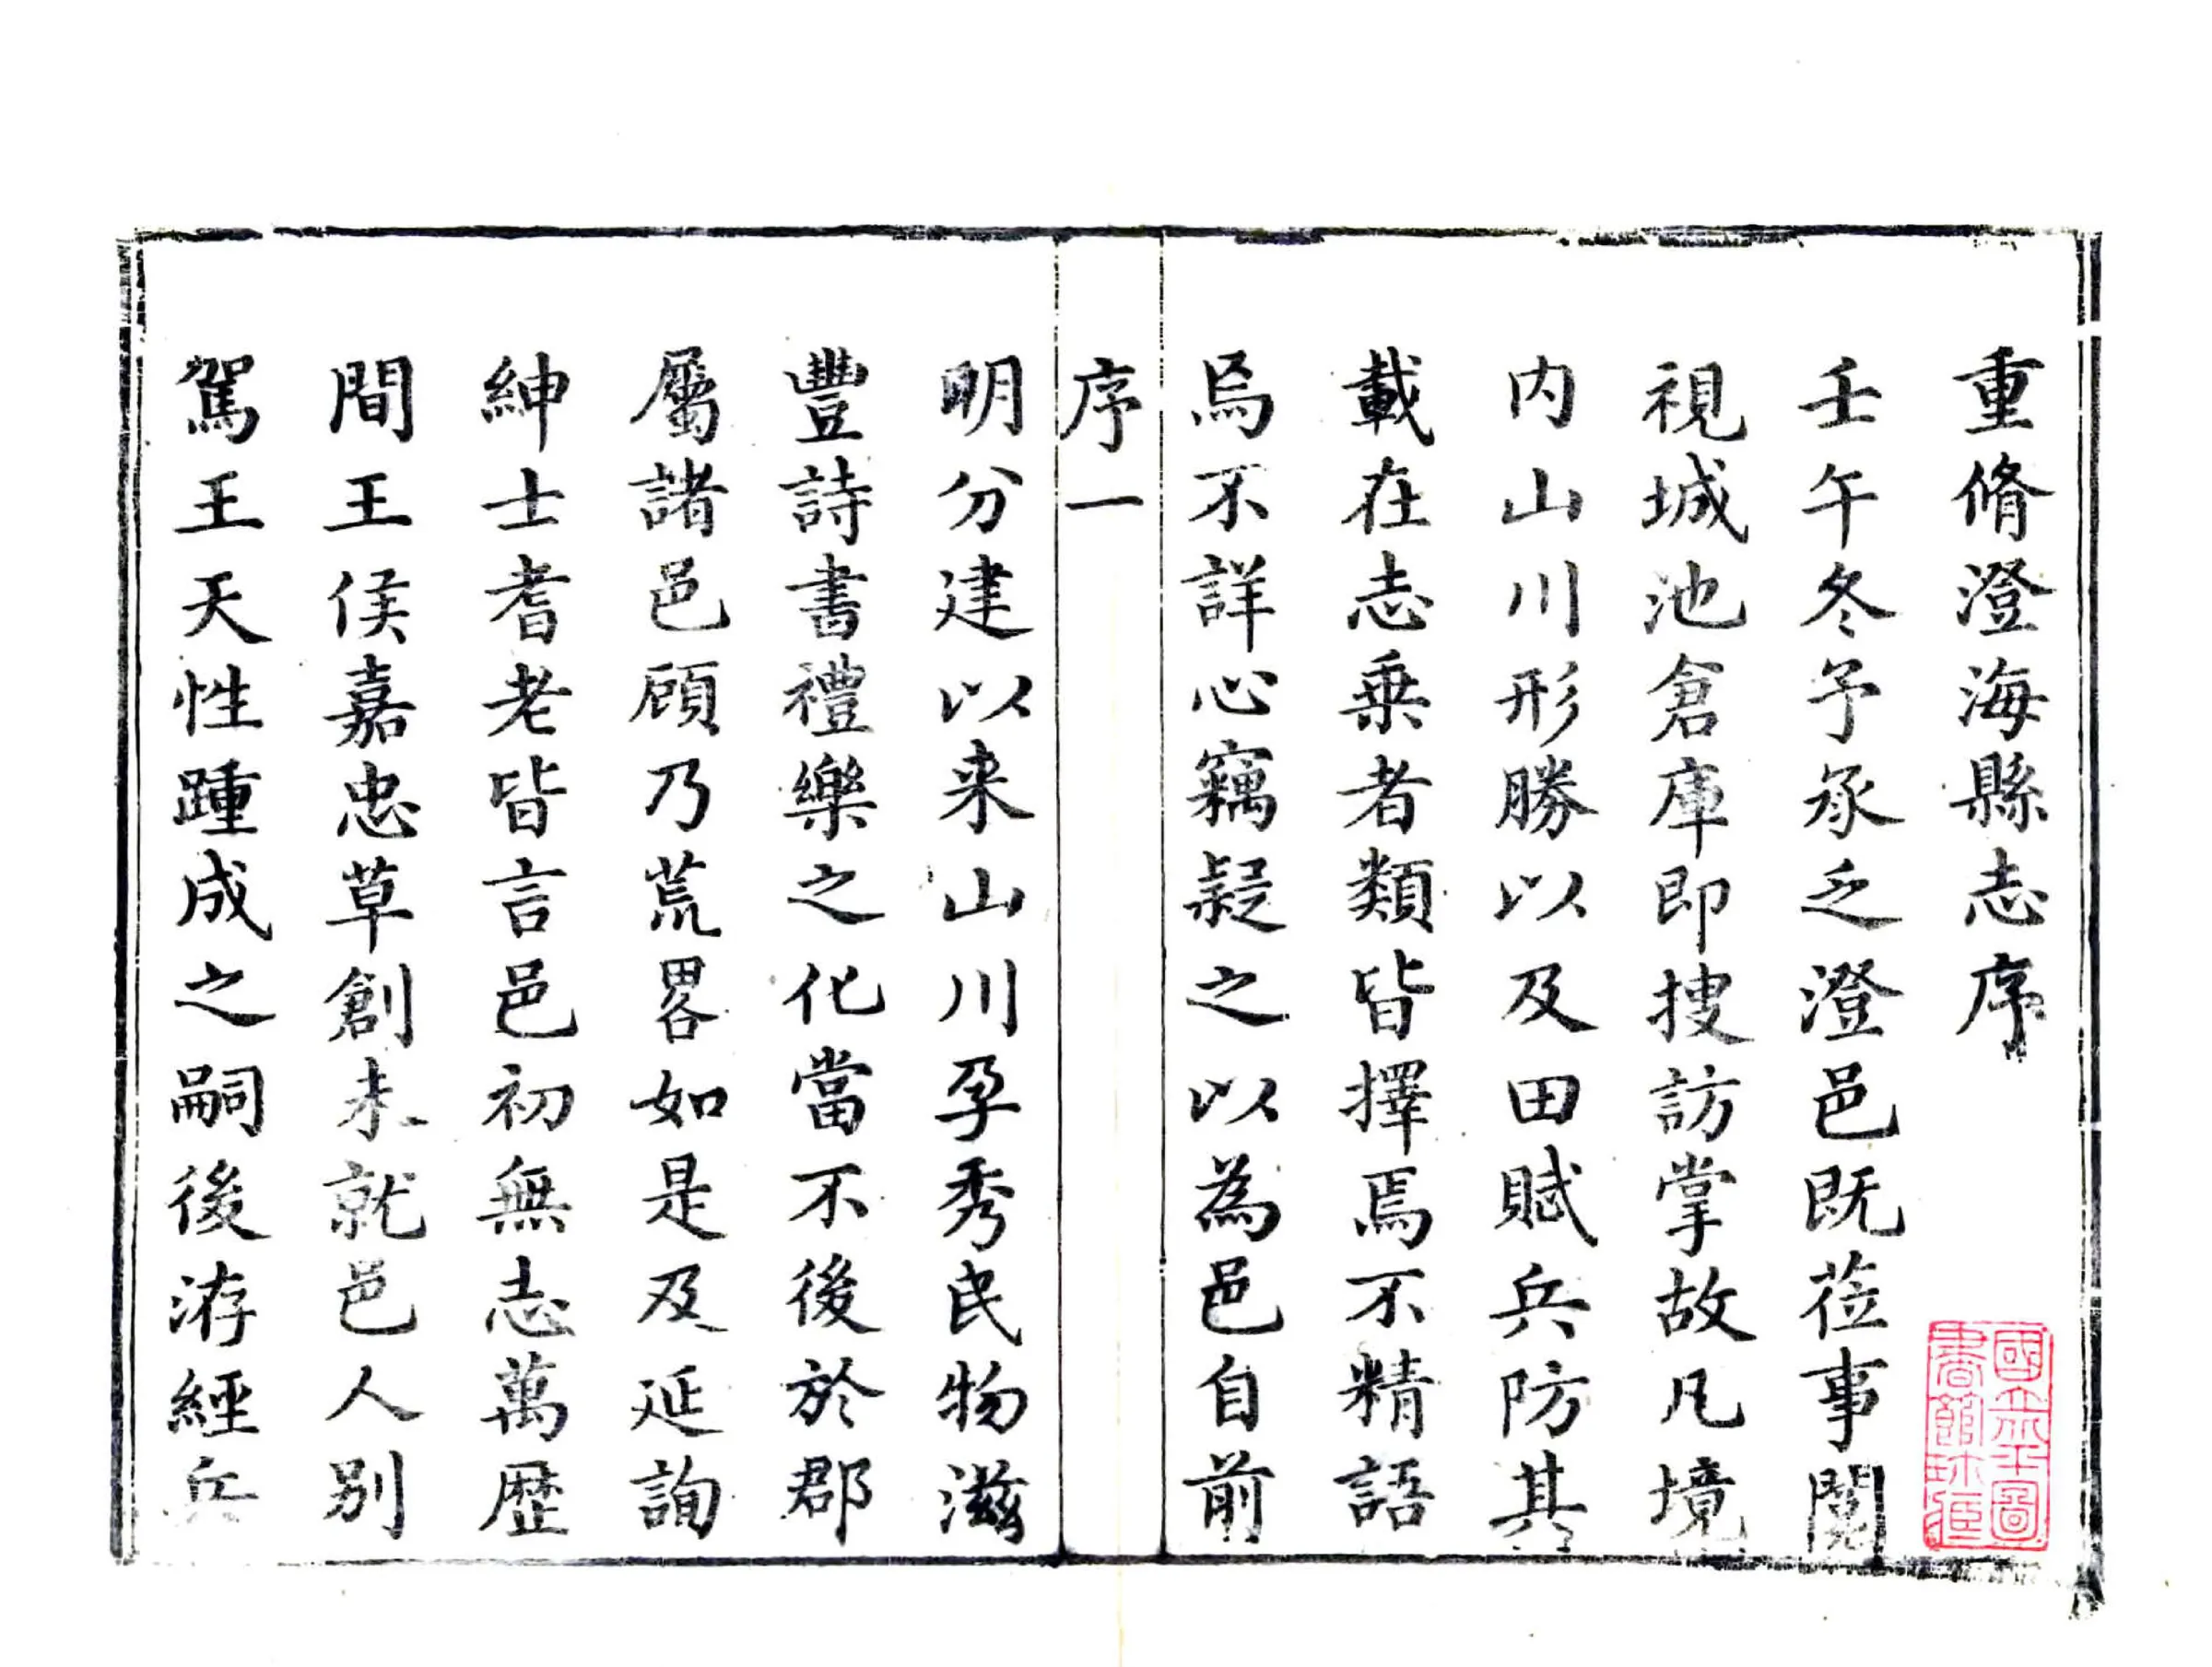 重脩澄海縣志序
壬午冬予承乏澄邑既蒞事閱
視城池倉庫即搜訪掌故凡境
内山川形勝以及田賦兵防其
載在志乗者類皆擇焉不精語
焉不詳心竊疑之以為邑自前
序一
明分建以来山川孕秀民物滋
豐詩書禮樂之化當不後於郡
屬諸邑顧乃荒畧如是及延詢
紳士耆老皆言邑初無志萬歴
間王侯嘉忠草創未就邑人别
駕王天性踵成之嗣後洊經兵
國立北平圖
書館珍藏